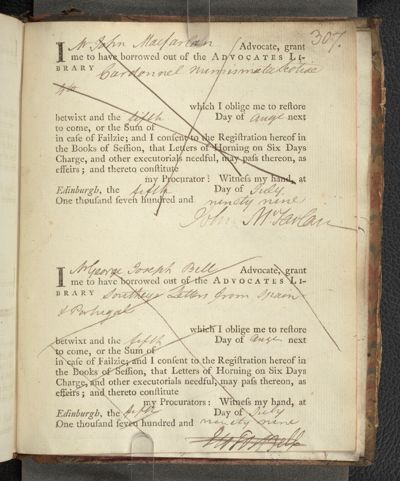 307.
I Mr John Macfarlan Advocate, grant
me to have borrowed out of the ADVOCATES LI-
BRARY Cardonnel Numismata Scotiae
4to
which I oblige me to restore
betwixt and the fifth Day of Augt next
to come, or the Sum of
in case of Failzie; and I consent to the Registration hereof in
the Books of Session, that Letters of Horning on Six Days
Charge, and other executorials needful, may pass thereon, as
effeirs; and thereto constitute
my Procurators: Witness my hand, at
Edinburgh, the fifth Day of July
One thousand seven hundred and ninety nine
John McFarlan
I Mr George Joseph Bell Advocate, grant
me to have borrowed out of the ADVOCATES LI-
BRARY Southeys Letters from Spain
& Portugal
which I oblige me to restore
betwixt and the fifth Day of Augt next
to come, or the Sum of
in case of Failzie; and I consent to the Registration hereof in
the Books of Session, that Letters of Horning on Six Days
Charge, and other executorials needful, may pass thereon, as
effeirs; and thereto constitute
my Procurators: Witness my hand, at
Edinburgh, the fifth Day of July
One thousand seven hundred and ninety nine
Geo Jos Bell